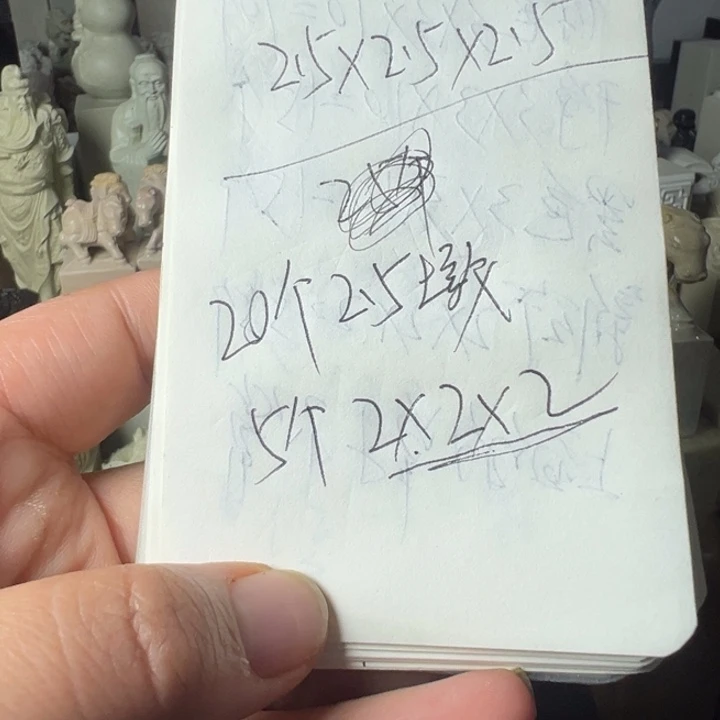 2.5×2.5×2.5
20个 2.5
5个 2×2×2